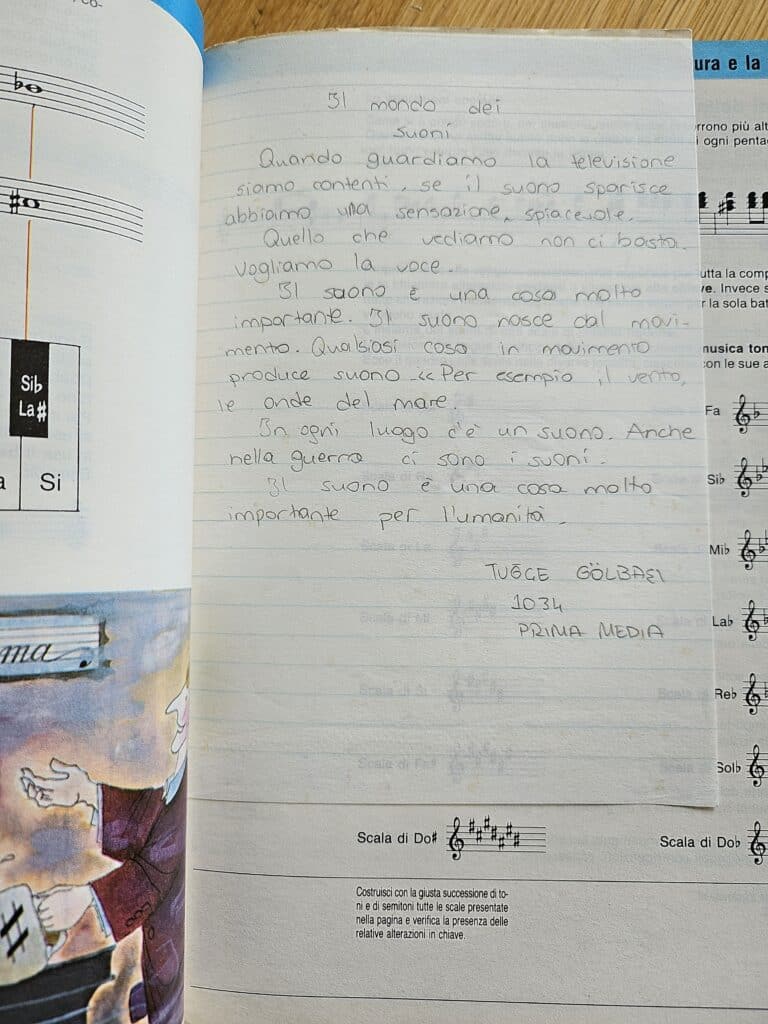 Il mondo dei
suoni
Quando guardiamo la televisione
siamo contenti, se il suono sparisce
abbiamo una sensazione, spiacevole.
Quello che vediamo non ci basta.
Vogliamo la voce.
Il suono è una cosa molto
importante. Il suono nasce dal movi-
mento. Qualsiasi cosa in movimento
produce suono. << Per esempio il vento,
le onde del mare.
In ogni luogo c'è un suono. Anche
nella guerra ci sono i suoni.
Il suono è una cosa molto
importante per l'umanità.
TUĞÇE GÖLBAŞI
1034
PRIMA MEDIA
Si♭
La#
a
Si
ma
#
ura e la
rrono più alt
i ogni penta
utta la comp
ve. Invece s
r la sola bat
musica ton
con le sue a
Fa
Si♭
Mi♭
La♭
Re♭
Sol♭
Scala di Do#
Scala di Do♭
Costruisci con la giusta successione di to-
ni e di semitoni tutte le scale presentate
nella pagina e verifica la presenza delle
relative alterazioni in chiave.